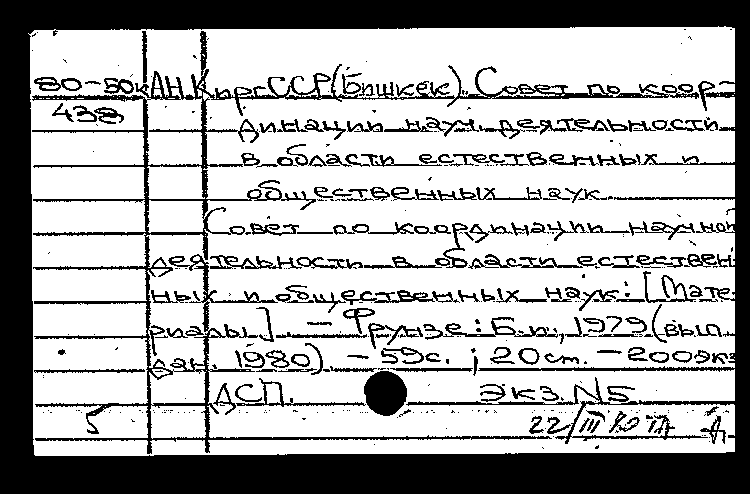 80-50к АН КиргССР(Бишкек). Совет по коор-
438 динации науч. деятельности
в области естественных и
общественных наук
Совет по координации научной
деятельности в области естествен-
ных и общественных наук: [Мате-
риалы]. — Фрунзе: Б.и., 1979(вып.
дан. 1980). — 59с. ; 20см. — 200экз
ДСП. Экз. N5
5 22/III 80